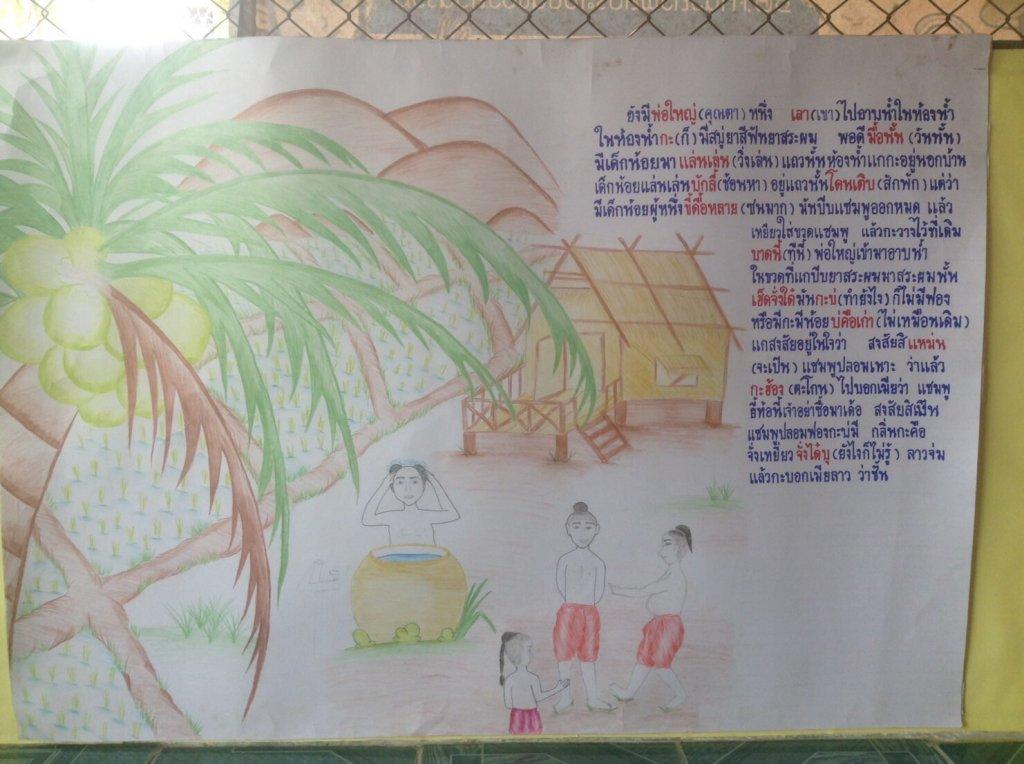 ยังมีพ่อใหญ่(คุณตา) หนึ่ง เลา(เขา)ไปอาบน้ำในห้องน้ำ
ในห้องน้ำกะ(ก็)มีสบู่ยาสีฟันยาสระผม พอดีมื้อนั้น(วันนั้น)
มีเด็กน้อยมาแล่นเล่น(วิ่งเล่น)แถวนั้นห้องน้ำแกกะอยู่นอกบ้าน
เด็กน้อยแล่นเล่นบักลี้(ซ่อนหา)อยู่แถวนั้นโดนเติบ(สักพัก)แต่ว่า
มีเด็กน้อยผู้หนึ่งขี้ดื้อหลาย(ซนมาก)มันบีบแชมพูออกหมด แล้ว
เหยียวใส่ขวดแชมพู แล้วกะวางไว้ที่เดิม
บาดนี้(ทีนี้)พ่อใหญ่เข้ามาอาบน้ำ
ในขวดที่แกบีบยาสระผมมาสระผมนั้น
เฮ็ดจั่งใด๋มันกะบ่(ทำยังไง)ก็ไม่มีฟอง
หรือมีกะมีน้อยบ่คือเก่า(ไม่เหมือนเดิม)
แกสงสัยอยู่ในใจว่า สงสัยสิแหม่น
(จะเป็น)แชมพูปลอมเหาะ ว่าแล้ว
กะฮ้อง(ตะโกน)ไปบอกเมียว่า แชมพู
ยี่ห้อนี้เจ้าอย่าซื้อมาเด้อ สงสัยสิเป็น
แชมพูปลอมฟองกะบ่มี กลิ่นกะคือ
จั่งเหยียวจั่งได๋บุ(ยังไงก็ไม่รู้) ลาวจ่ม
แล้วกะบอกเมียลาว ว่าซั่น